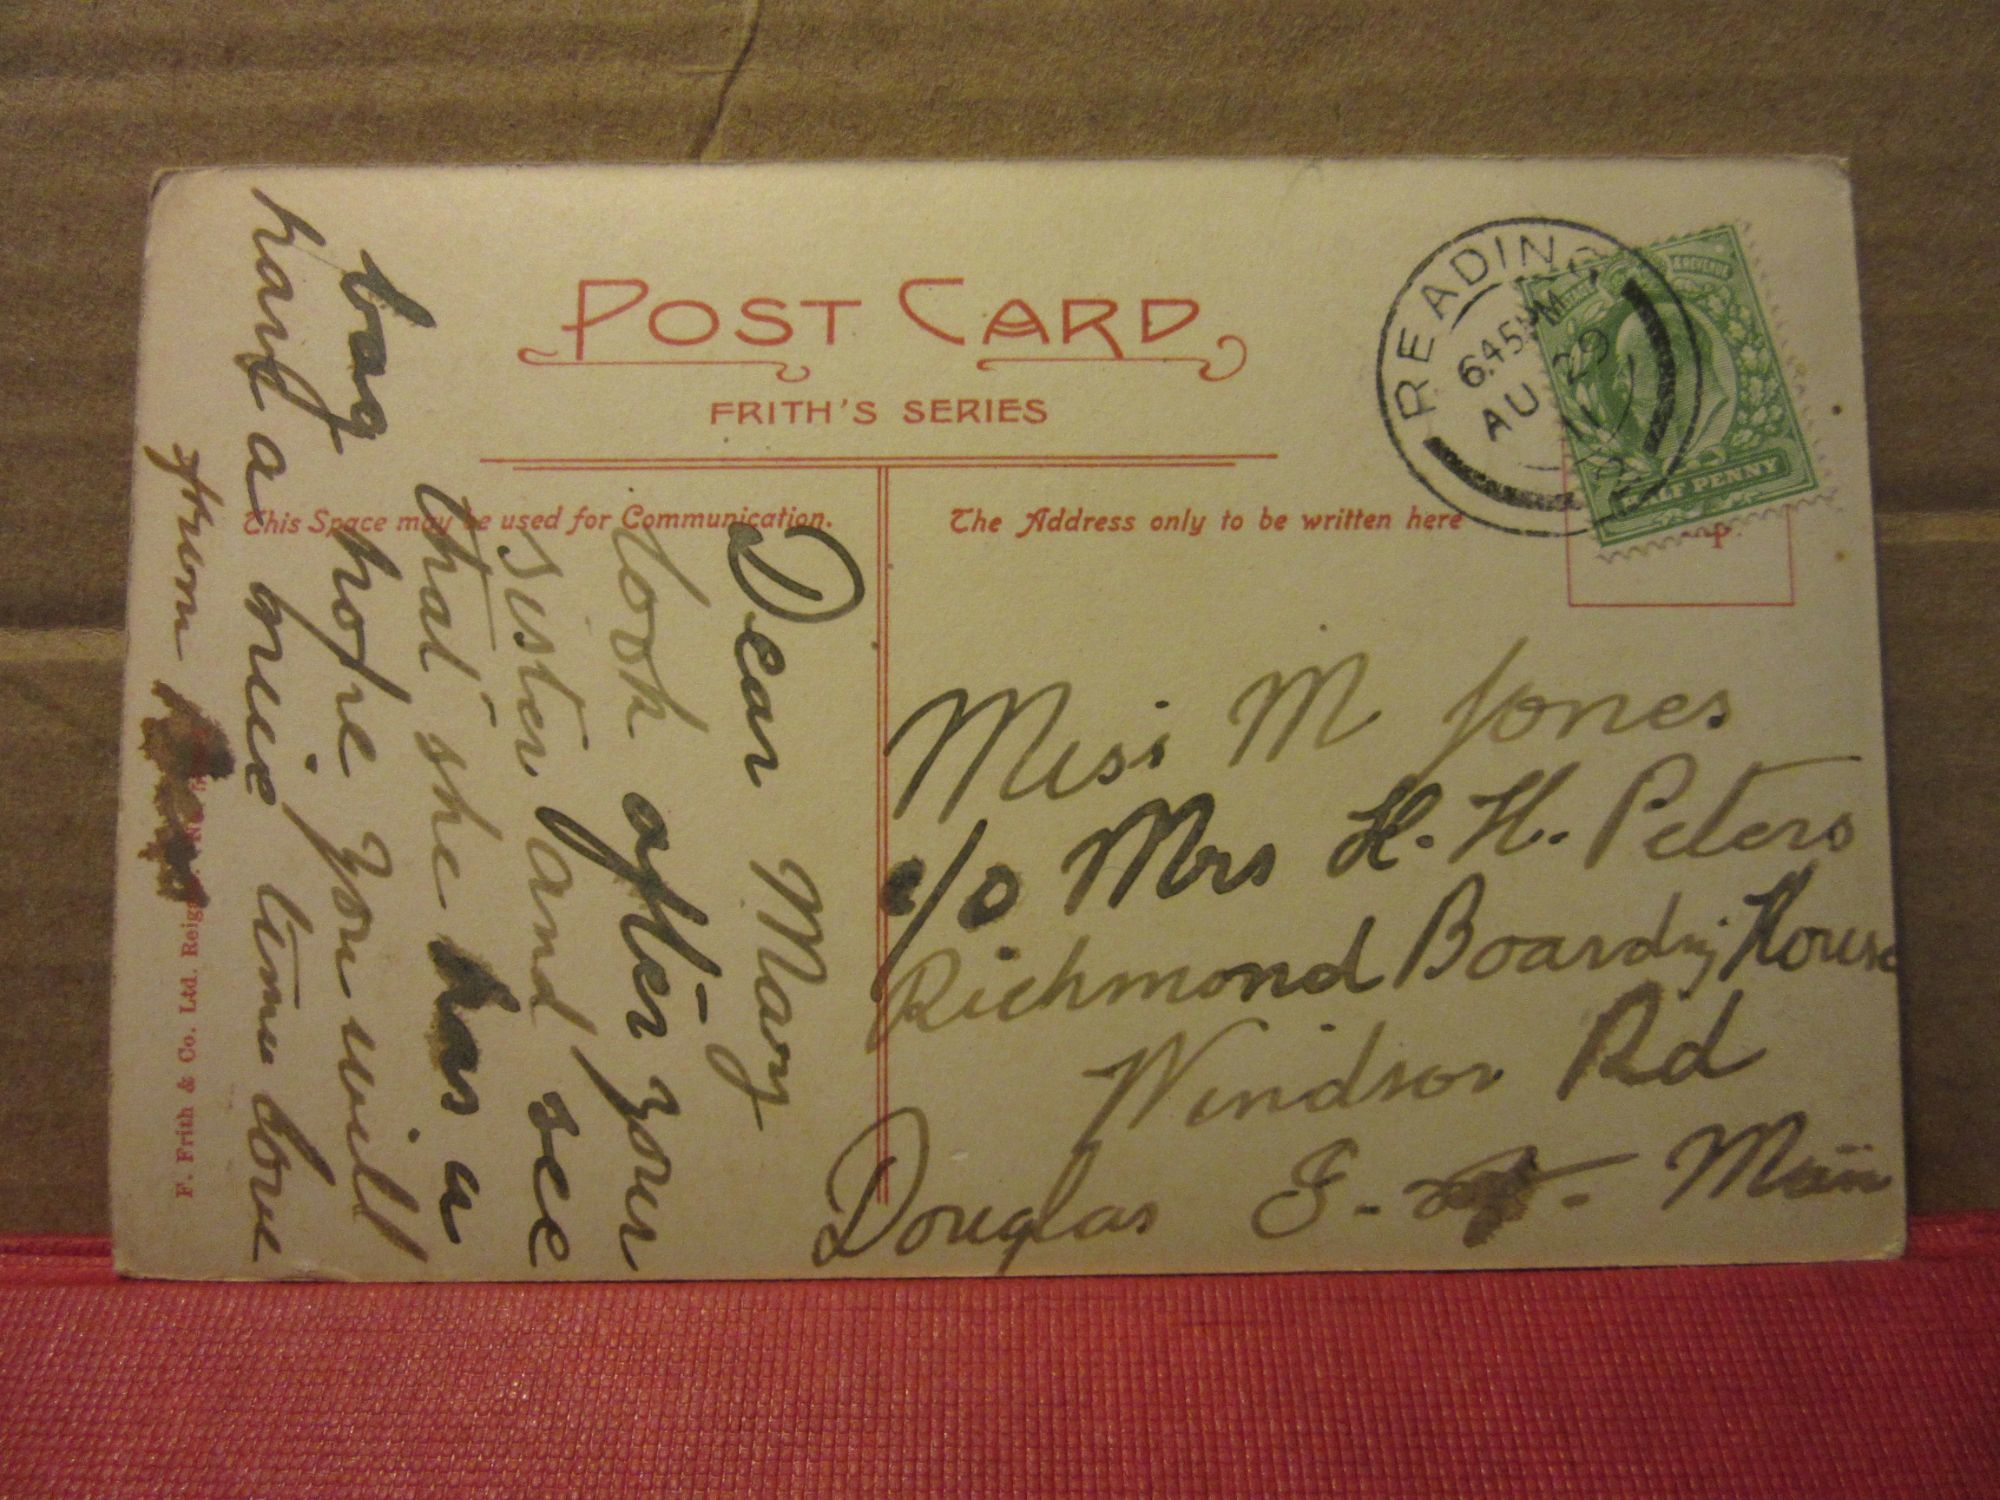 POST CARD
FRITH'S SERIES
This Space may be used for Communication.
The Address only to be written here
READING
6.45 PM
AU 29
11
HALF PENNY
Miss M Jones
c/o Mrs H. H. Peters
Richmond Boarding House
Windsor Rd
Douglas I. of. Man
Dear Mary
look after your
sister and see
that she has a
bag
hope you will
have a nice time love
from
F. Frith & Co. Ltd. Reig